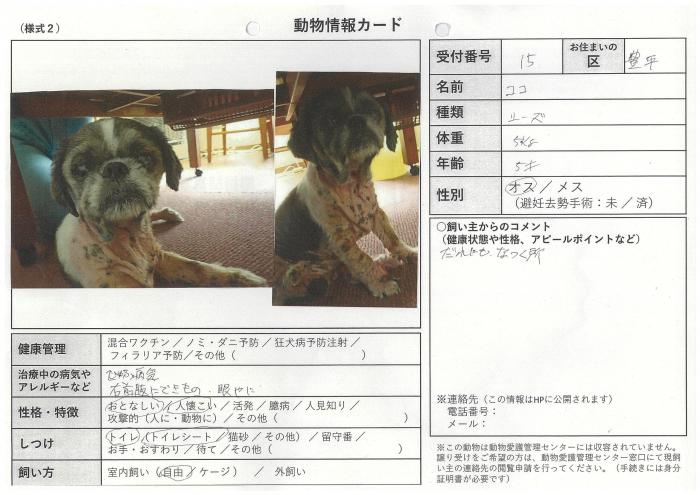 (様式２)
動物情報カード
受付番号 15 お住まいの区 豊平
名前 ココ
種類 シーズ
体重 5kg
年齢 5才
性別 オス／メス
（避妊去勢手術：未／済）
○飼い主からのコメント
（健康状態や性格、アピールポイントなど）
だれにでも なつく所
※連絡先（この情報はHPに公開されます）
電話番号：
メール：
※この動物は動物愛護管理センターには収容されていません。
譲り受けをご希望の方は、動物愛護管理センター窓口にて現飼
い主の連絡先の閲覧申請を行ってください。（手続きには身分
証明書が必要です）
健康管理 混合ワクチン／ノミ・ダニ予防／狂犬病予防注射／
フィラリア予防／その他（ ）
治療中の病気や
アレルギーなど
ひふ病気
右前腹にできもの・眼やに
性格・特徴 おとなしい／人懐こい／活発／臆病／人見知り／
攻撃的（人に・動物に）／その他（ ）
しつけ トイレ（トイレシート／猫砂／その他）／留守番／
お手・おすわり／待て／その他（ ）
飼い方 室内飼い（自由／ケージ） ／ 外飼い